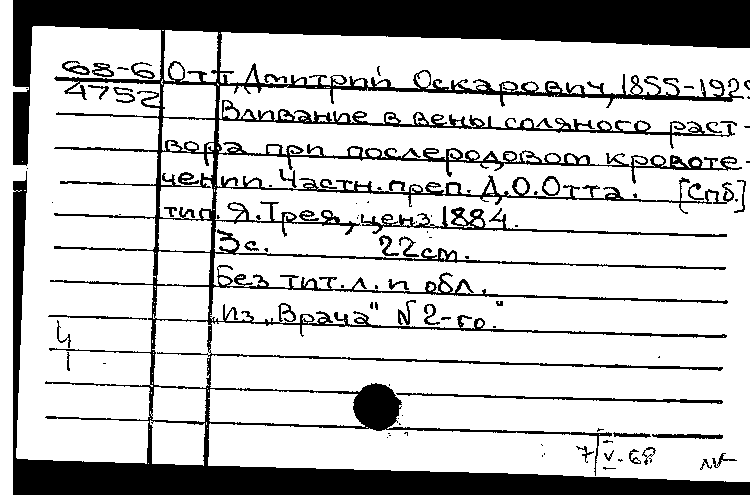 68-6 Отт, Дмитрий Оскарович, 1855-1929
4752
Вливание в вены соляного раст-
вора при послеродовом кровоте-
чении. Частн. преп. Д.О.Отта. [Спб.]
тип. Я.Трея, ценз 1884.
3с. 22см.
Без тит.л. и обл.
"Из "Врача" N 2-го."
4
1
7/V-68